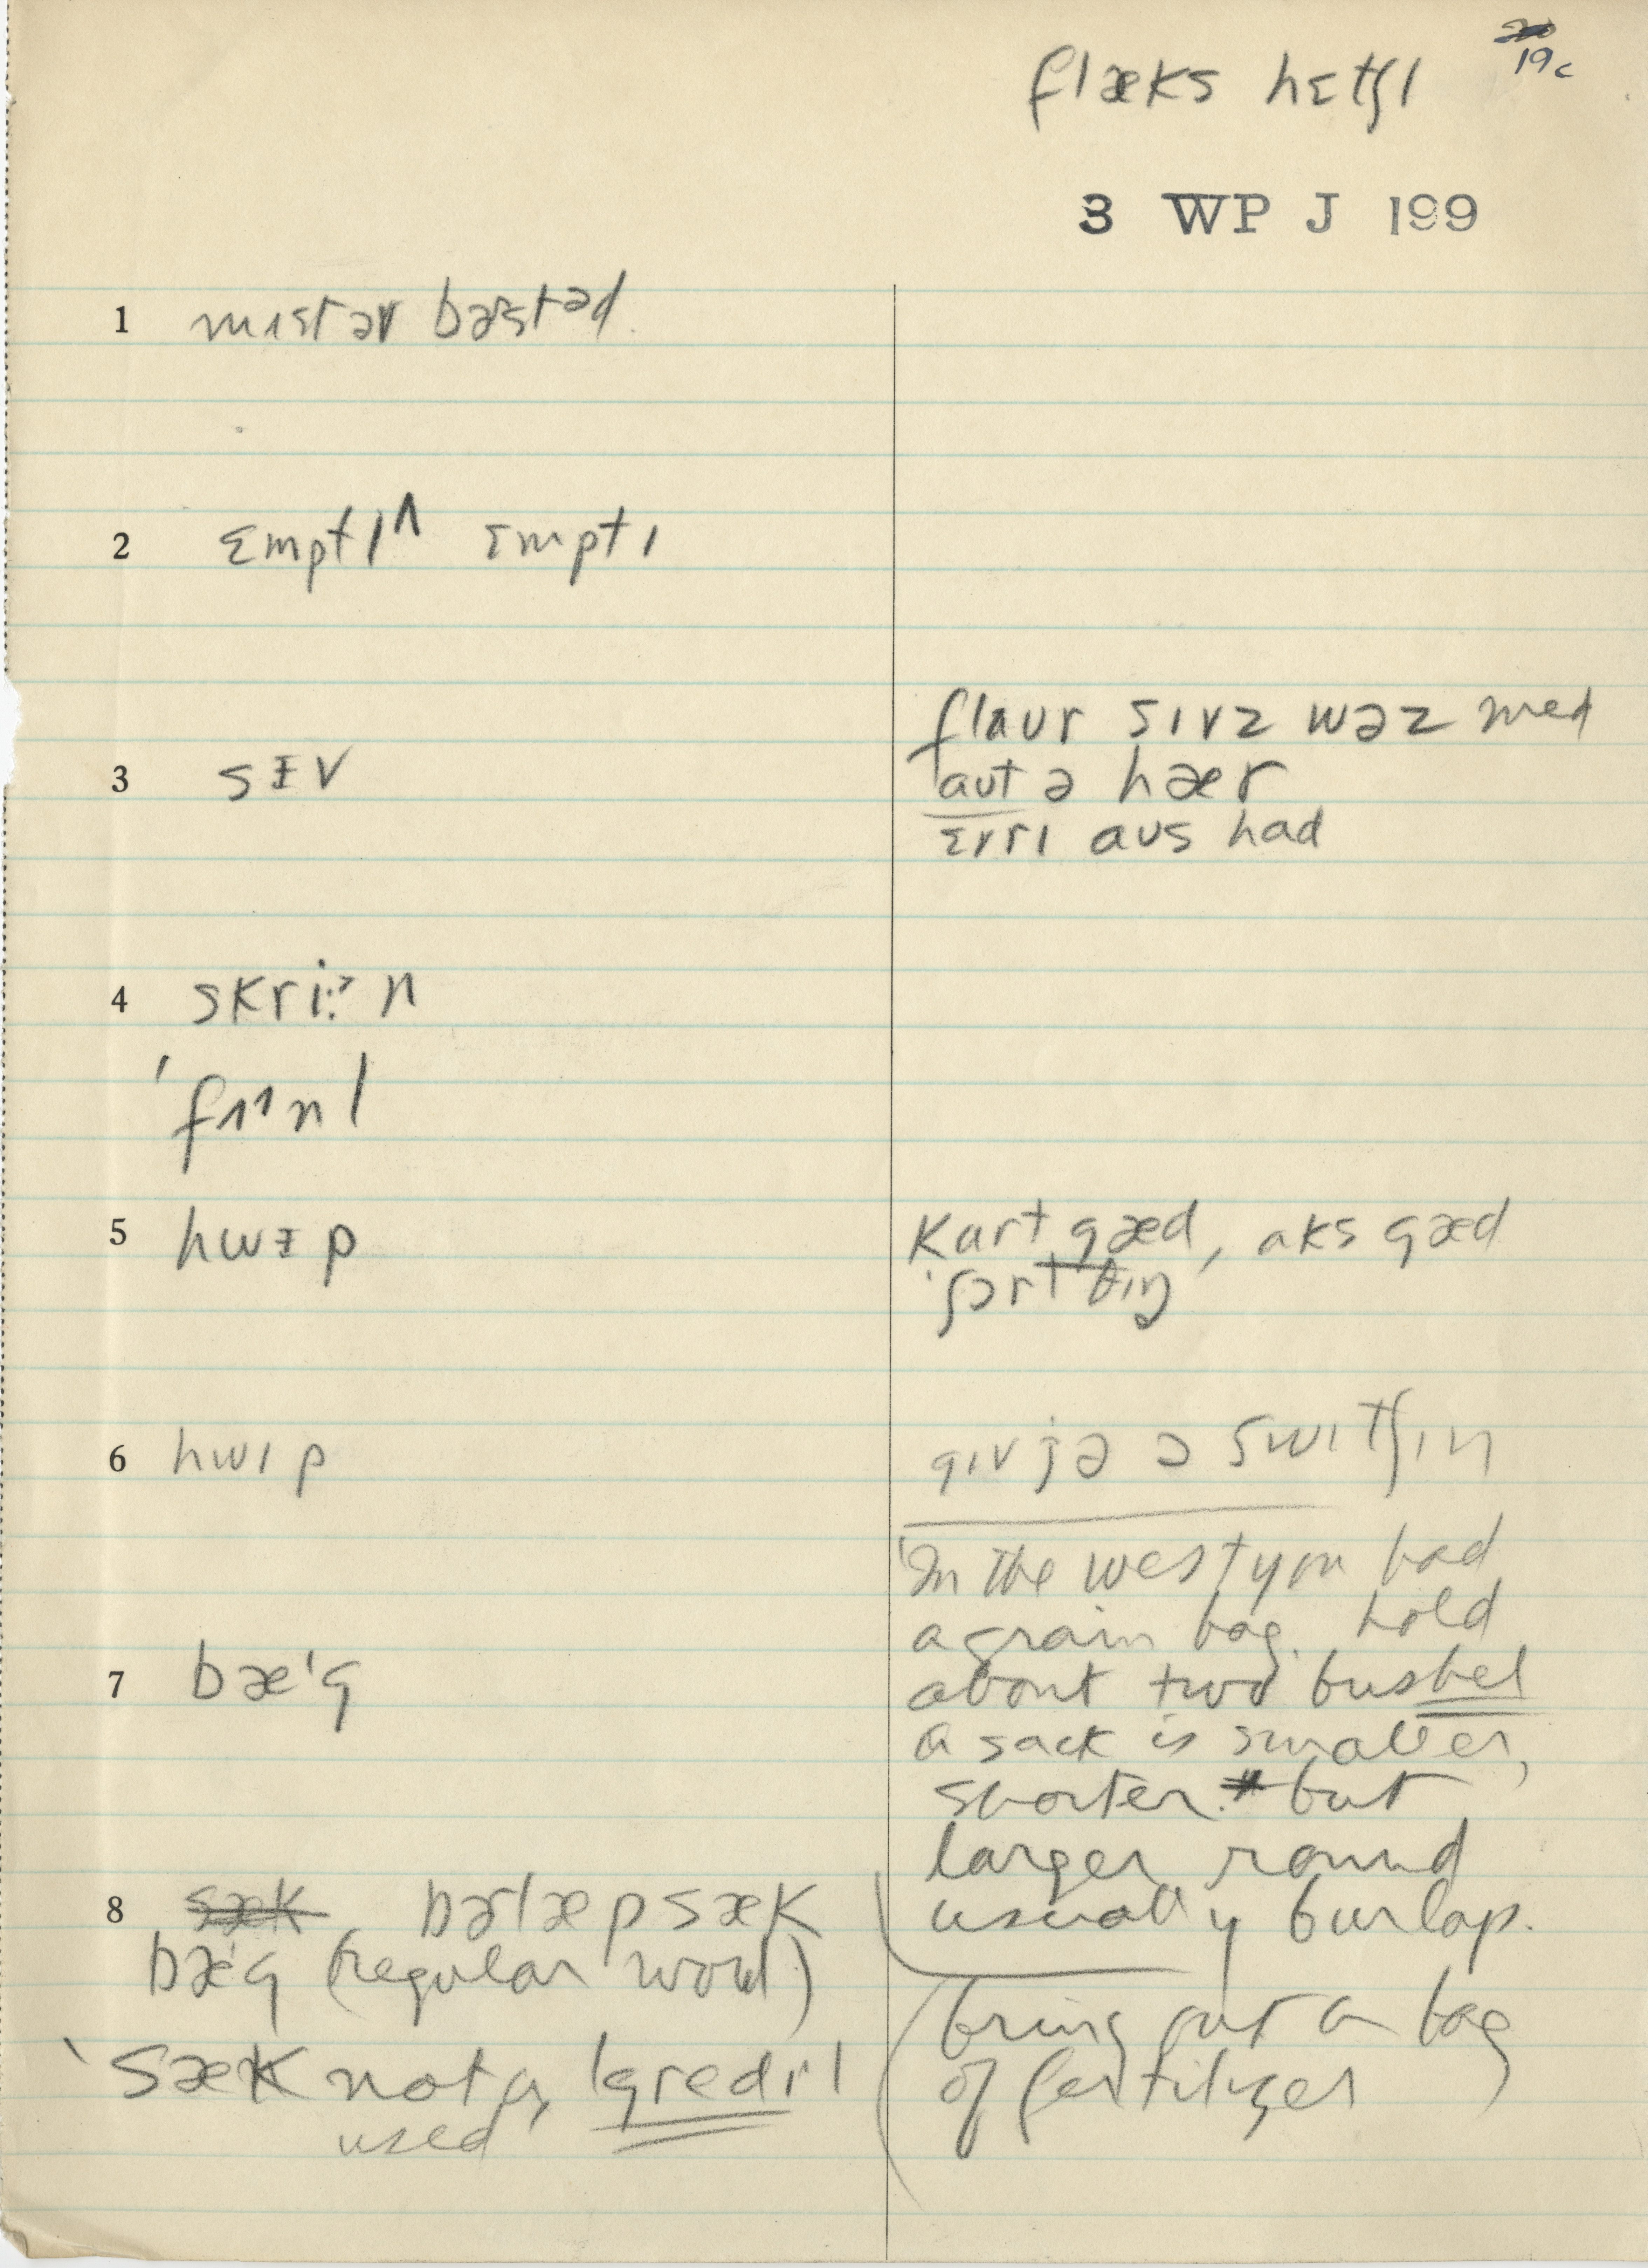 flæks hɛtʃl
19c
3 WP J 199
1 mɪstər bæstəd
2 ɛmptɪ^ ɛmptɪ
3 sɪv
flaʊr sɪvz wəz med
aʊt ə hær
ɛvrɪ aʊs had
4 skri:>n
'fɪnl
5 hwɪp
kart gæd, aks gæd
ʃɔrt θɪŋ
6 hwɪp
gɪv jə ə swɪtʃɪn
'In the west you had
a grain bag. hold
about two bushel
7 bæ'g
a sack is smaller,
shorter. but
larger round
usually burlap.
8 sæk bərlæp sæk
bæ'g (regular word)
bring out a bag
of fertilizer
sæk not
used